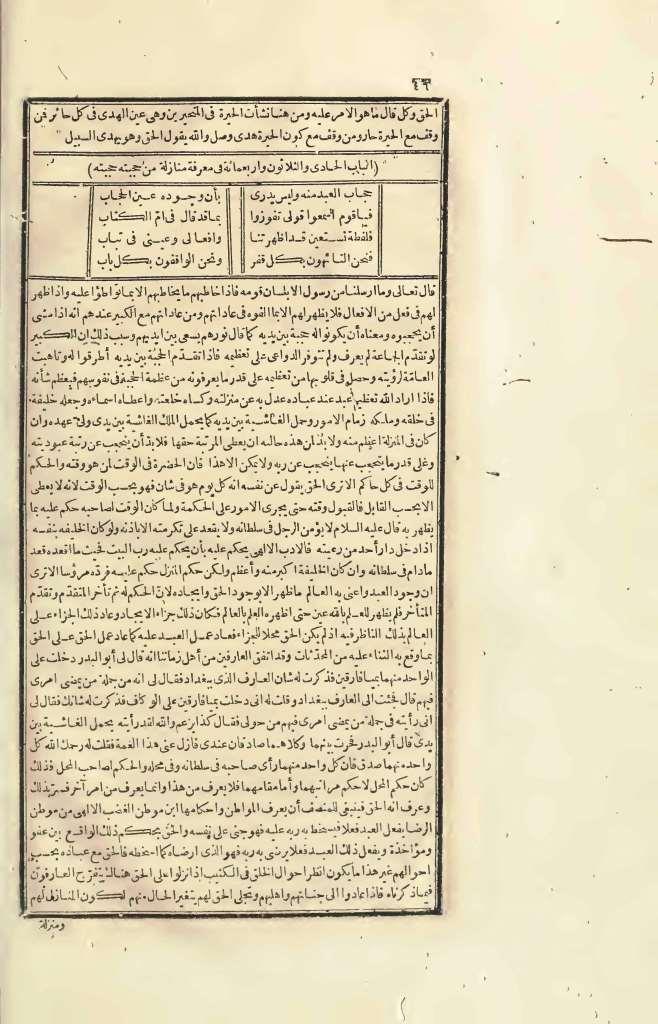 ٤٦
الحق وكل قال ما هو الامر عليه ومن هنا نشأت الحيرة فى المتحيرين وهى عين الهدى فى كل حائر فمن
وقف مع الحيرة حار ومن وقف مع كون الحيرة هدى وصل والله يقول الحق وهو يهدى السبيل
(الباب الحادى والثلاثون واربعمائة فى معرفة منازلة من حجبته حجبته)
حجاب العبد منه وليس يدرى بأن وجوده عين الحجاب
فيا قوم اسمعوا قولى تفوزوا بما قد قال فى ام الكتاب
فلفظة نستعين قد اظهرتنا وافعالى وعينى فى تباب
فنحن التائهون بكل قفر ونحن الواقفون بكل باب
قال تعالى وما ارسلنا من رسول الا بلسان قومه فاذا خاطبهم ما يخاطبهم الا بما تواطؤا عليه واذا ظهر
لهم فى فعل من الافعال فلا يظهر لهم الا بما الفوه فى عاداتهم ومن عاداتهم مع الكبير عندهم انه اذا مشى
أن يحجبوه ومعناه أن يكونوا له حجبة بين يديه كما قال نورهم يسعى بين ايديهم وسبب ذلك ان الكبير
لو تقدم الجماعة لم يعرف ولم تتوفر الدواعى على تعظيمه فاذا تقدم الحجبة بين يديه أطرقوا له وتاهبت
العامة لرؤيته وحصل فى قلوبها من تعظيمه على قدر ما يعرفونه من عظمة الحجبة فى نفوسهم فيعظم شأنه
فاذا اراد الله تعظيم عبد عند عباده عدل به عن منزلته وكساه خلعته واعطاه اسماءه وجعله خليفة
فى خلقه وملكه زمام الامور وحمل الغاشية بين يديه كما يحمل الملك الغاشية بين يدى ولى عهده وان
كان فى المنزلة اعظم منه ولا بد لمن هذه حالته ان يعطى المرتبة حقها فلا بد أن ينحجب عن رتبة عبوديته
وعلى قدر ما ينحجب عنها ينحجب عن ربه ولا يمكن الا هذا فان الحضرة فى الوقت لمن هو وقته والحكم
للوقت فى كل حاكم الا ترى الحق يقول عن نفسه انه كل يوم هو فى شان فهو بحسب الوقت لانه لا يعطى
الا بحسب القابل فالقبول وقته حتى يجرى الامور على الحكمة ولما كان الوقت لصاحبه حكم عليه بما
يظهر به قال عليه السلام لا يؤمن الرجل فى سلطانه ولا يقعد على تكرمته الا باذنه ولو كان الخليفه بنفسه
اذا دخل دار أحد من رعيته فالادب الالهى يحكم عليه بأن يحكم عليه رب البيت فحيث ما اقعده قعد
مادام فى سلطانه وان كان الخليفة اكبر منه وأعظم ولكن حكم المنزل حكم عليه فرده مرؤسا الا ترى
ان وجود العبد واعنى به العالم ما ظهر الا بوجود الحق وايجاده لان الحكم له ثم تأخر المتقدم وتقدم
المتأخر فلم يظهر للعلم بالله عين حتى اظهره العلم بالعالم فكان ذلك جزاء الايجاد وعاد ذلك الجزاء على
العالم بذلك الناظر فيه اذ لم يكن الحق محلا للجزاء فعاد عمل العبد عليه كما عاد عمل الحق على الحق
بما وقع به الثناء عليه من المحدثات وقد اتفق العارفين من أهل زماننا انه قال لى أبو البدر دخلت على
الواحد منهما بميافارقين فذكرت له شان العارف الذى ببغداد فقال لى انه من جملة من يمضى امرى
فيهم قال فجئت الى العارف ببغداد وقلت له انى دخلت بميافارقين على الوكاف فذكرت له شانك فقال لى
انى رأيته فى جملة من يمضى امرى فيهم من حولى فقال كذا يزعم والله لقد رأيته يحمل الغاشية بين
يدى قال أبو البدر فحرت بينهما وكلاهما صادقان عندى فأزل عنى هذا الغمة فقلت له رحمك الله كل
واحد منهما صدق فان كل واحد منهما رأى صاحبه فى سلطانه وفى محله والحكم لصاحب المحل فذلك
كان حكم المحل لا حكم مراتبهما وأما مقامهما فلا يعرف من هذا وانما يعرف من امر آخر فسر بذلك
وعرف انه الحق فينبغى للمنصف أن يعرف المواطن واحكامها اين موطن الغضب الالهى من موطن
الرضا يفعل العبد فعلا فيسخط به ربه عليه فهو جنى على نفسه والحق يحكم ذلك الواقع بين عفو
ومؤاخذة ويفعل ذلك العبد فعلا يرضى به ربه فهو الذى ارضاه كما اسخطه فالحق مع عباده بحسب
احوالهم غير هذا ما يكون انظر احوال الخلق فى الكثيب اذا نزلوا على الحق هنالك يتفرح العارفون
فيما ذكرناه فاذا عادوا الى جناتهم واهليهم وتجلى الحق لهم يتغير الحال منهم لكون المنازل لهم
ومنزلة